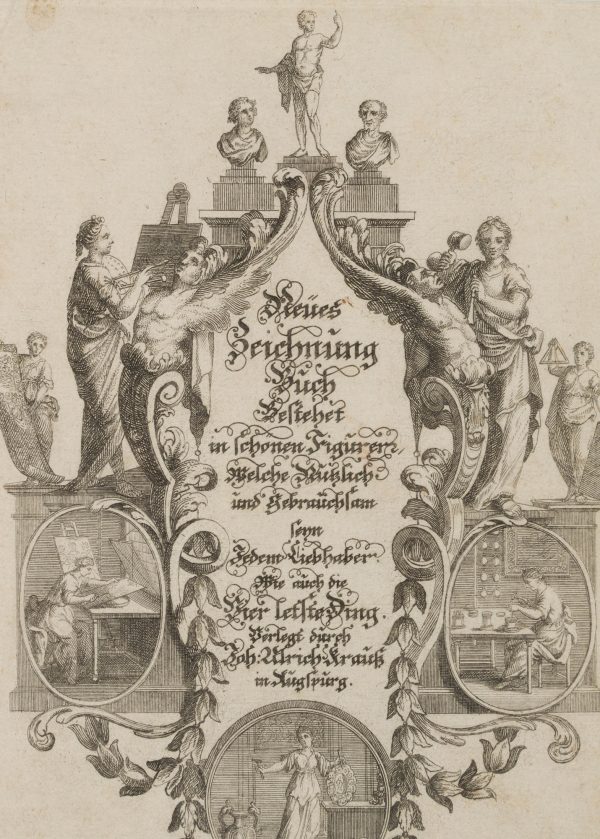 Neües
Zeichnung
Buch
Bestehet
in schönen Figuren,
Welche Nützlich
und Gebrauchsam
seyn
Jedem Liebhaber.
Wie auch die
Vier letste Ding.
Verlegt durch
Joh. Ulrich Krauß
in Augspurg.